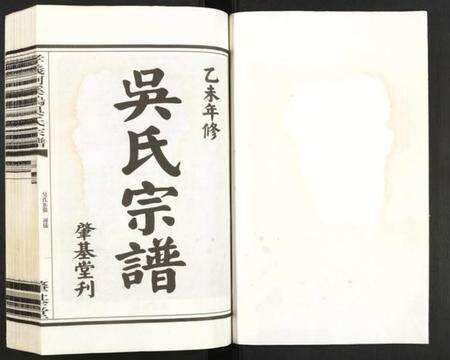 乙未年修
吳氏宗譜
肇基堂刊